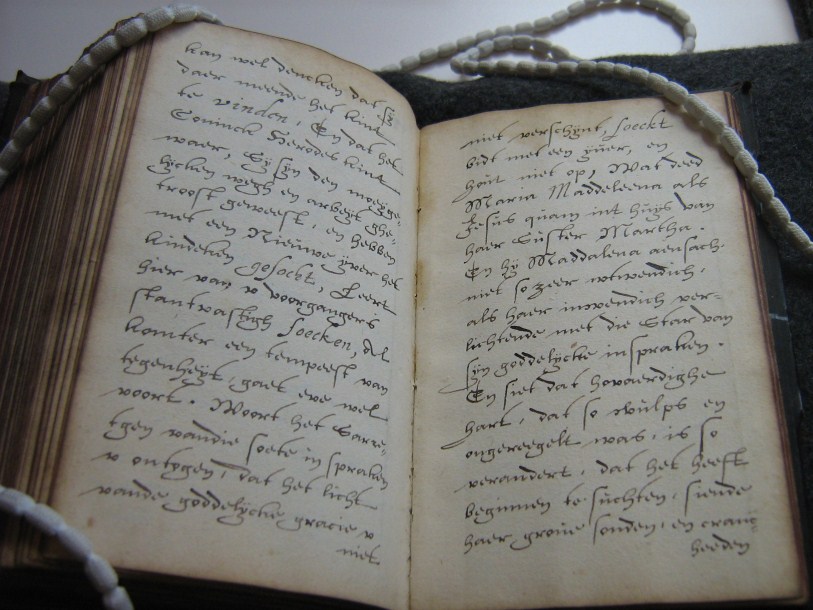 kan wel dencken dat sy
daer meende het kint
te vinden, En dat het
Coninck Herodes kint
waer, Sy syn den moeyge-
lycken wegh en arbeyt ghe-
troost geweest, en hebben
met een Nieuwe yver het
kindeken gesocht, Leert
hier van v voorgangers
stantvastigh soecken, al
komter een tempeest van
tegenheyt, gaet eve wel
voort. Woort het Sterre-
tgen vandie soete in spraken
v ontogen, dat het licht
vande goddelycke gracie v
niet
niet verschynt, soeckt
bidt met een yver, en
hout niet op, Wat deed
Maria Maddeleena als
Jesus quam int huys van
haer Suster Martha.
En hy Maddalena aensach
niet so zeer wtwendich,
als haer inwendich ver-
lichtende met die Star van
syn goddelycke inspraken.
En siet dat hovaerdighe
hart, dat so wulps en
ongereegelt was, is so
verandert, dat het heeft
beginnen te suchten, siende
haer grove sonden, en cranc-
heeden